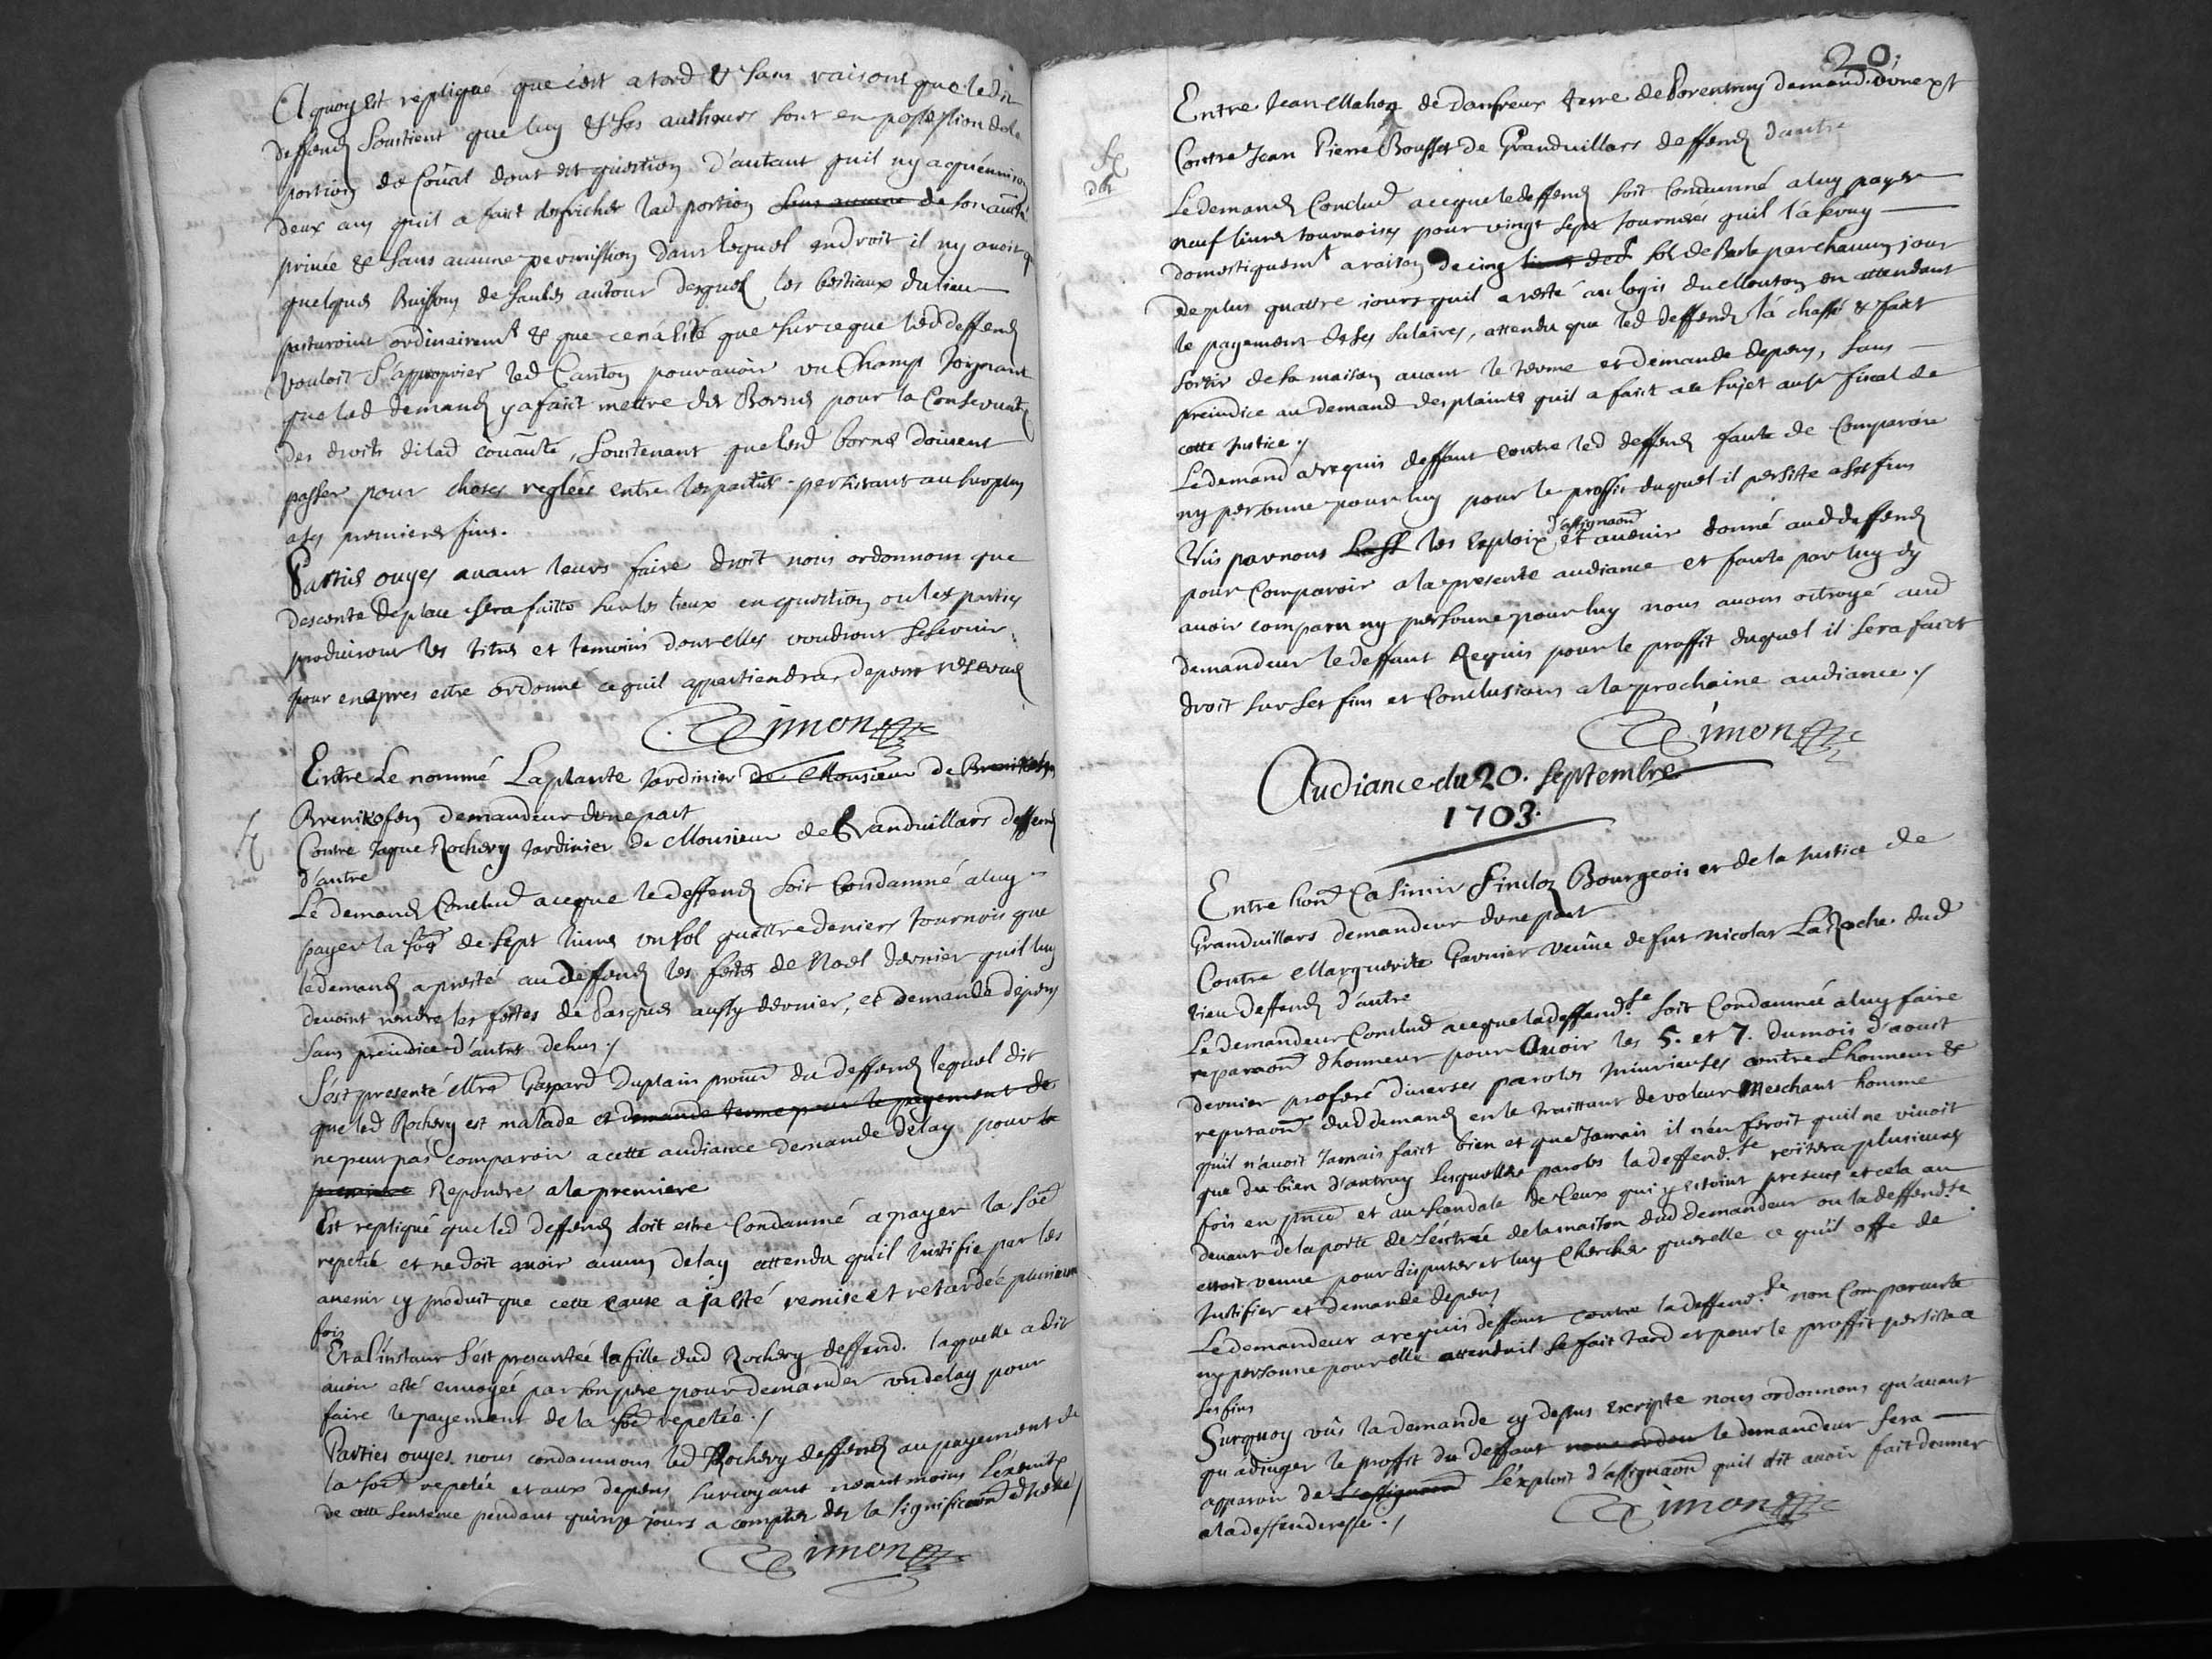 A quoy est repliqué que c'est a tord & sans raisons que ledit
deffend soustient que luy & ses autheurs sont en possession de la
portion de Coûal dont est question d'autant quil ny a qu'enuiron
deux ans quil a faict desfricher lad portion sans aucune de son auth
priuée & sans aucune permission dans lequel endroit il ny auoit q
quelques Buissons de saules autour desquel les bestiaux du lieu
pasturoint ordinairemt & que ce n'a esté que sur ce que led deffend
vouloit s'approprier led Canton pour auoir un Champ Joignant
que lad demand y a faict mettre des Bornes pour la Conseruation
des droits de lad coûauté, soustenant que lesd bornes doiuent
passer pour choses reglées entre les parties persistant au surplus
a ses premieres fins.
Parties ouyes auant leurs faire droit nous ordonnons que
descente de place sera faitte sur les lieux en question ou les parties
produiront les titres et temoins dont elles voudront se seruir
pour en apres estre ordonné ce quil appartiendra, depens reserués
Simon
Entre Le nommé Laplante Jardinier de Monsieur de
Brenikofen demandeur d'une part
Contre Jaque Rochery Jardinier de Monsieur de Granduillars deffend
d'autre
Le demand Conclud a ce que le deffend soit Condamné a luy
payer la soe de sept liures un sol quattre deniers tournois que
le demand a presté au deffend les festes de Noel dernier quil luy
deuoint rendre les festes de Pasques aussy dernier, et demande depens
sans preiudice d'autres dehus ./
S'est presenté Mre Gaspard Duplain procur du deffend lequel dit
que led Rochery est malade et demande terme pour le payement de
ne peut pas comparoir a cette audiance demande delay pour le
premiere Repondre a la premiere
Est repliqué que led deffend doit estre Condamné a payer la soe
repetée et ne doit auoir aucun delay attendu qu'il Justifie par les
auenir cy produit que cette cause a ja esté remise et retardée plusieurs
fois
Et a l'instant s'est presentée la fille dud Rochery deffend. laquelle a dit
auoir esté enuoyée par son pere pour demander un delay pour
faire le payement de la soe repetée ./
Parties ouyes nous condamnons led Rochery deffend au payement de
la soe repetée et aux depens surcoyant neantmoins L'execution
de cette sentence pendant quinze jours a compter des la significaon d'icelle /
Simon
20.
Entre Jean Mahon de Damfreux terre de Porentruy demand d'une pt
Contre Jean Pierre Bousset de Granduillars deffend d'autre
Le demand Conclud a ce que le deffend soit Condamné a luy payer
neuf liures tournoises pour vingt sept Journées quil l'a seruy
domestiquemt a raison de cinq sols de Basle par chacun jour
de plus quattre jours quil a resté au logis du Mouton en attendant
le payement de ses salaires, attendu que led deffend l'a chassé & faict
sortir de sa maison auant le terme et demande depens, sans
preiudice au demand des plaintes quil a faict a ce sujet au sr fiscal de
cette Justice ./
Le demand a requis deffaut contre led deffend faute de Comparoir
ny personne pour luy pour le proffit duquel il persiste a ses fins
Vûs par nous les Exploix d'assignaon et auenir donné aud deffend
pour Comparoir a la presente audiance et faute par luy dy
auoir comparu ny personne pour luy nous auons octroyé aud
demandeur le deffaut Requis pour le proffit duquel il sera faict
droit sur ses fins et Conclusions a la prochaine audiance ./
Simon
Audiance du 20. Septembre
1703.
Entre hond Casimir Findoz Bourgeois et de la Justice de
Granduillars demandeur d'une part
Contre Marguerite Garnier veûue de fut nicolas LaRoche dud
lieu deffend d'autre
Le demandeur Conclud a ce que la deffend.se soit Condamnée a luy faire
reparaon d'honneur pour Auoir les 5. et 7. du mois d'aoust
dernier proferé diuerses paroles Iniurieuses contre L'honneur &
reputaon dud demand en le traittant de voleur Meschant homme
quil n'auoit Jamais faict bien et que Jamais il n'en feroit quil ne viuoit
que du bien d'autruy lesquelles paroles la deffend.se reitera plusieurs
fois en pnce et au scandale de Ceux qui y estoint presens et cela au
deuant de la porte de L'entrée de la maison dud demandeur ou la deffend.se
estoit venue pour disputer et luy Chercher querelle ce qu'il offre de
Justifier et demande depens
Le demandeur a requis deffaut contre la deffend.se non Comparante
ny personne pour elle attendu il se fait tard et pour le proffit persiste a
ses fins
Surquoy vûs la demande cy dessus Escripte nous ordonnons qu'auant
qu'adiuger le proffit du deffaut nous ordon le demandeur sera
apparoir de L'assignaon L'exploit d'assignaon quil dit auoir fait donner
a la deffenderesse ./
Simon